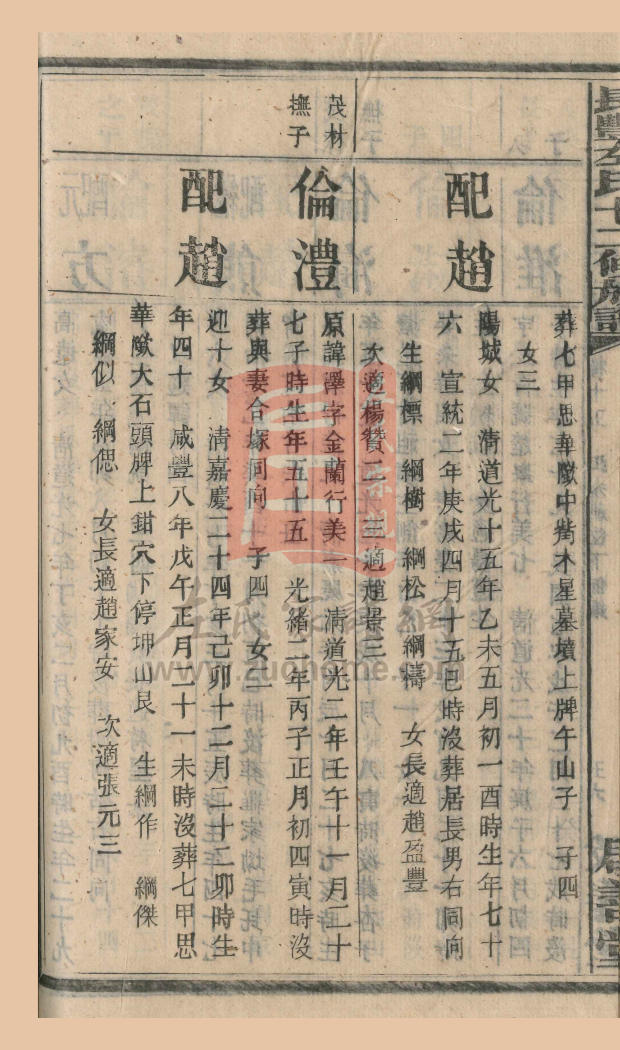 葬七甲思華歟中衖木星墓墳上牌午山子 子四
女三
配趙
陽城女 清道光十五年乙未五月初一酉時生年七十
六 宣統二年庚戌四月十五巳時沒葬居長男右同向
生綱標 綱樹 綱松 綱檮 女長適趙盈豐
次適楊贊 三適趙
茂材
撫子
倫澧
原諱澤字金蘭行美一 清道光二年壬午十一月二十
七子時生年五十五 光緒二年丙子正月初四寅時沒
葬與妻合塚同向 子四 女二
配趙
迎十女 清嘉慶二十四年己卯十二月二十二卯時生
年四十 咸豐八年戊午正月二十一未時沒葬七甲思
華歟大石頭牌上鉗穴下停坤山艮 生綱作 綱傑
綱似 綱偲 女長適趙家安 次適張元三
左氏家譜網
www.zuohome.com